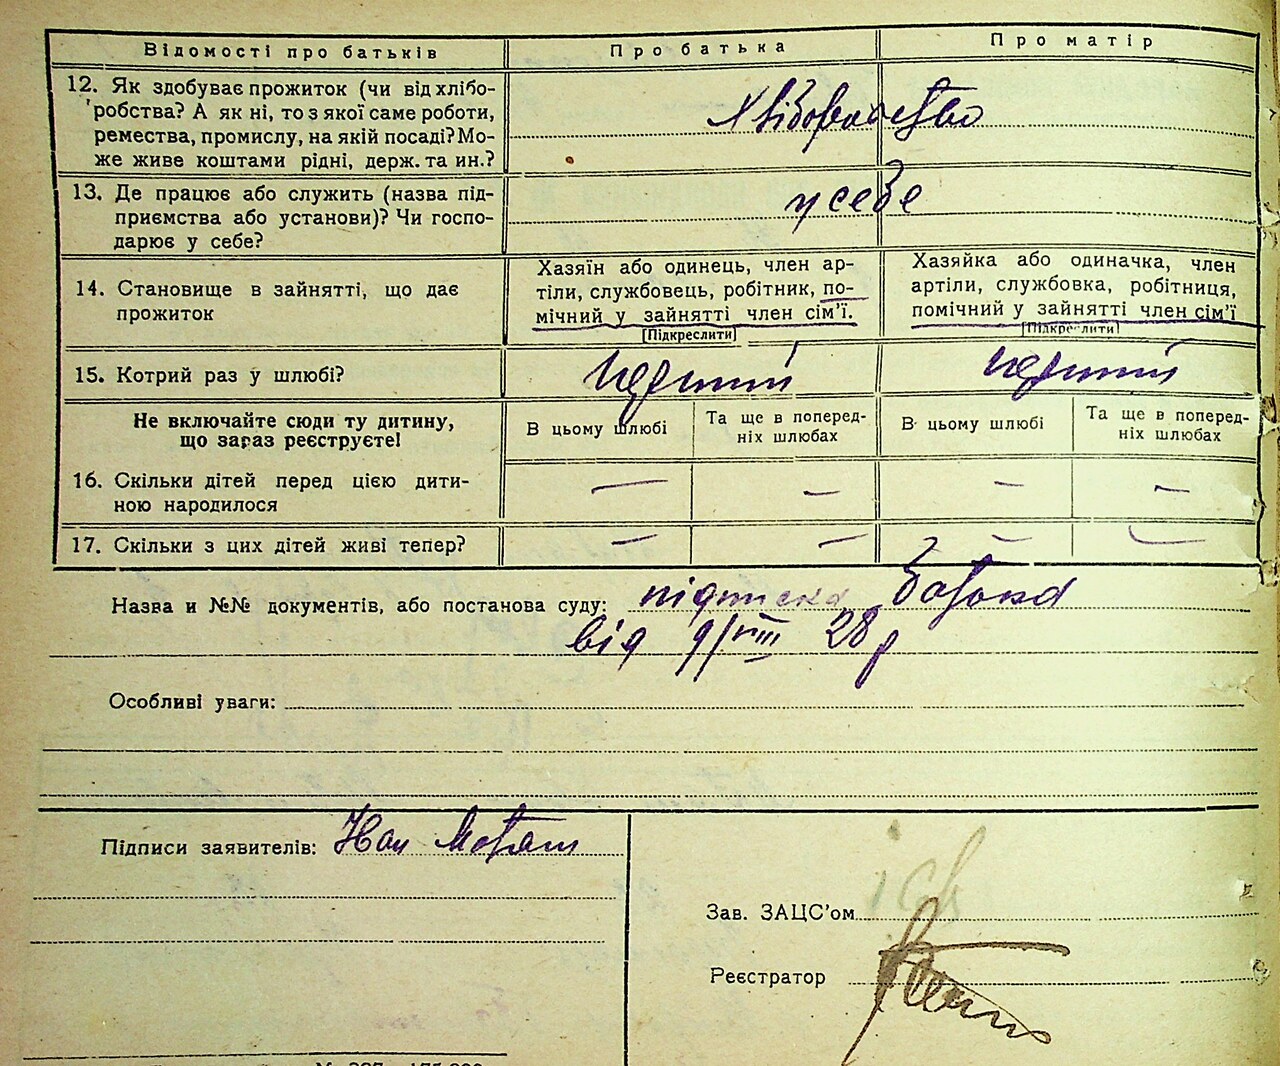 Відомості про батьків
Про батька
Про матір
12. Як здобуває прожиток (чи від хлібо-
робства? А як ні, то з якої саме роботи,
ремества, промислу, на якій посаді? Мо-
же живе коштами рідні, держ. та ин.?
Хліборобство
13. Де працює або служить (назва під-
приємства або установи)? Чи госпо-
дарює у себе?
у себе
14. Становище в зайнятті, що дає
прожиток
Хазяїн або одинець, член ар-
тіли, службовець, робітник, по-
мічний у зайнятті член сім'ї.
[Підкреслити]
Хазяйка або одиначка, член
артіли, службовка, робітниця,
помічний у зайнятті член сім'ї
[Підкреслити]
15. Котрий раз у шлюбі?
перший
перший
Не включайте сюди ту дитину,
що зараз реєструєте!
В цьому шлюбі
Та ще в поперед-
ніх шлюбах
В цьому шлюбі
Та ще в поперед-
ніх шлюбах
16. Скільки дітей перед цією дити-
ною народилося
— — — —
17. Скільки з цих дітей живі тепер?
— — — —
Назва и №№ документів, або постанова суду: підписка батька
від 9/VIII 28 р
Особливі уваги:
Підписи заявителів:
Зав. ЗАЦС'ом
Реєстратор